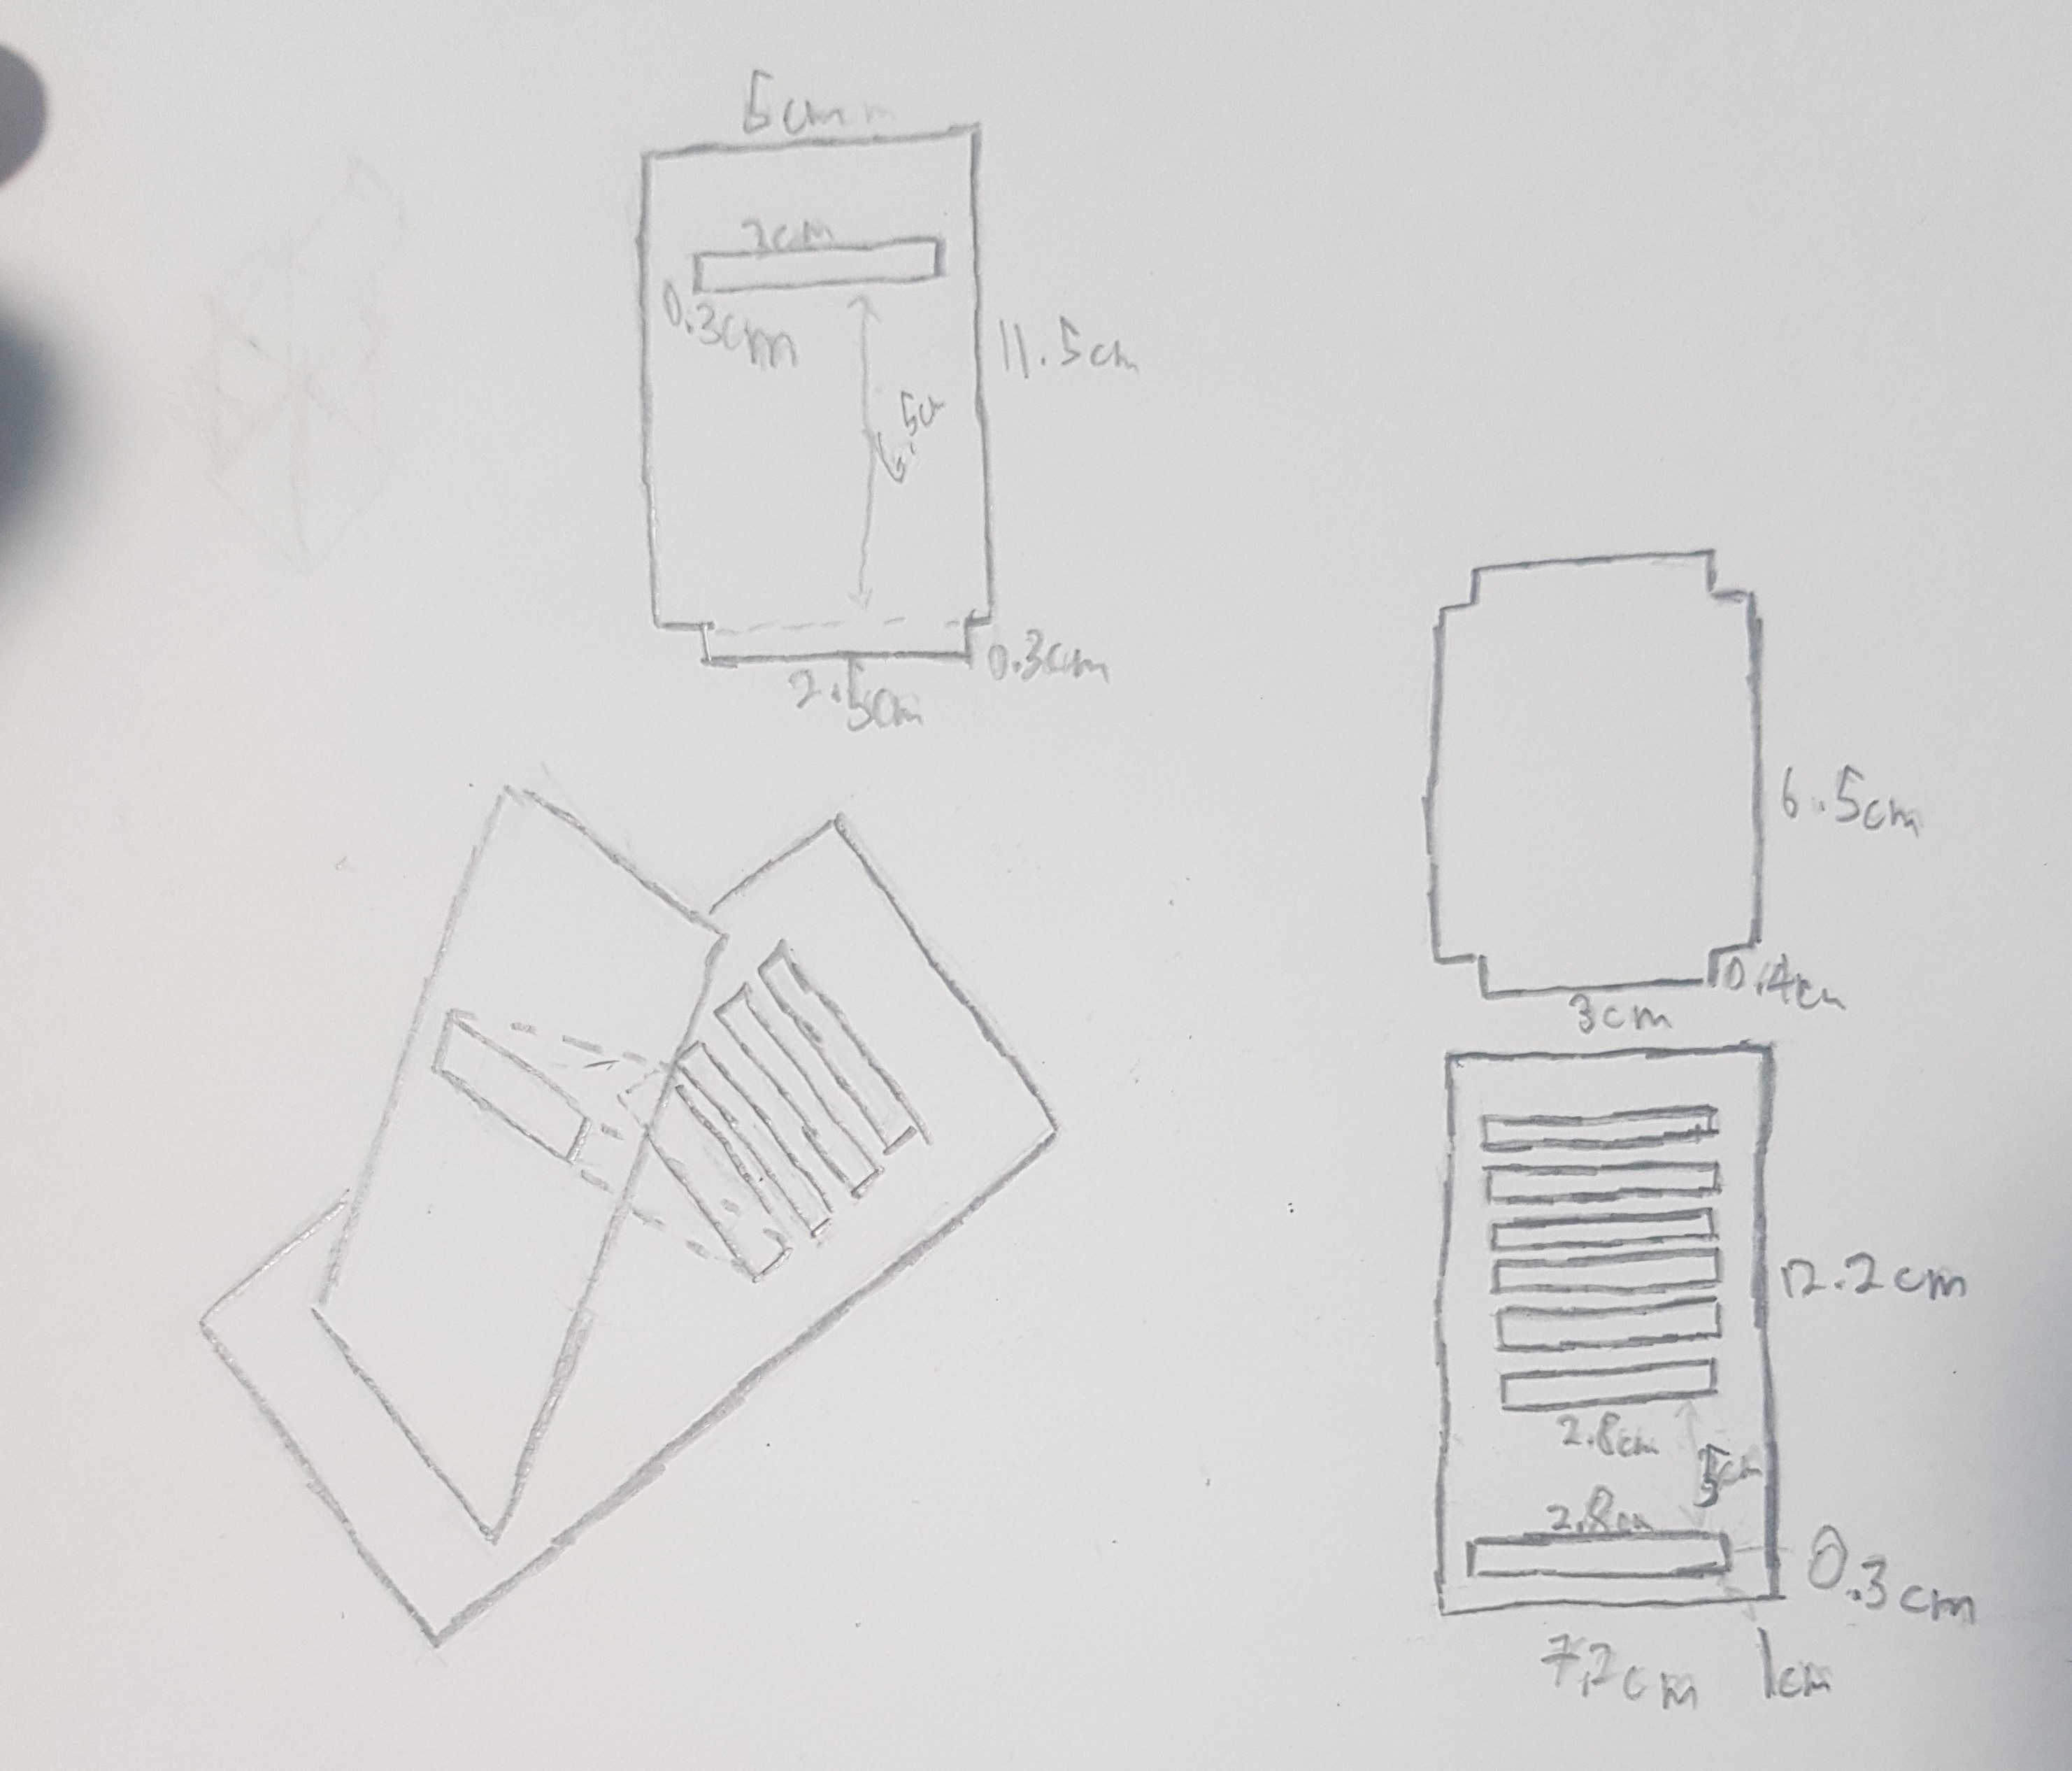 5cm m
2cm
0.3cm
11.5cm
6.5cm
0.3cm
2.5cm
6.5cm
0.4cm
3cm
12.2cm
2.8cm
5cm
2.8cm
0.3cm
7.2cm
1cm